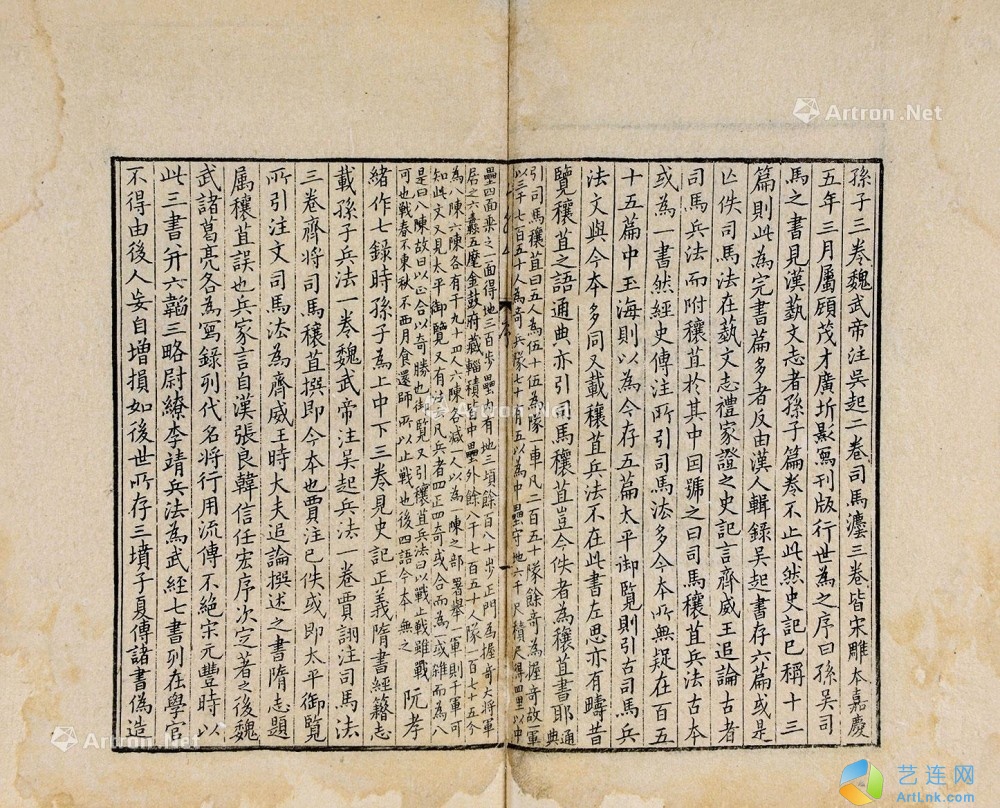 孫子三卷魏武帝注吴起二卷司馬灋三卷皆宋雕本嘉慶
五年三月屬顧茂才廣圻影寫刊版行世為之序曰孫吴司
馬之書見漢藝文志者孫子篇卷不止此然史記已稱十三
篇則此為完書篇多者反由漢人輯録吴起書存六篇或是
亾佚司馬法在藝文志禮家證之史記言齊威王追論古者
司馬兵法而附穰苴於其中囙號之曰司馬穰苴兵法古本
或為一書然經史傳注所引司馬法多今本所無疑在百五
十五篇中玉海則以為今存五篇太平御覽則引古司馬兵
法文與今本多同又載穰苴兵法不在此書左思亦有疇昔
覽穰苴之語通典亦引司馬穰苴豈今佚者為穰苴書耶通典
引司馬穰苴曰五人為伍十伍為隊一車凡二百五十隊餘奇為握奇故一軍
以三千七百五十人為奇兵隊七十有五以為中壘守地六千尺積尺得四里以中
壘四面乘之一面得地三百步壘内有地三頃餘百八十步正門為握奇大將軍
居之六纛五麾金鼓府藏輜積皆中壘外餘八千七百五十人隊一百七十五分
為八陳六陳各有千九十四人六陳各減一人以為一陳之部署舉一軍則千軍可
知此文又見太平御覽又有法凡兵者四正四奇或合而為一或雜而為八
是曰八陳故曰以正合以奇勝也御覽又引穰苴兵法曰以戰止戰雖戰
可也戰春不東秋不西月食還師所以止戰也後四語今本無之
阮孝
緒作七録時孫子為上中下三卷見史記正義隋書經籍志
載孫子兵法一卷魏武帝注吴起兵法一卷賈詡注司馬法
三卷齊將司馬穰苴撰即今本也賈注已佚或即太平御覽
所引注文司馬法為齊威王時大夫追論撰述之書隋志題
属穰苴誤也兵家言自漢張良韓信任宏序次定著之後魏
武諸葛亮各為寫録列代名將行用流傳不絕宋元豐時以
此三書并六韜三略尉繚李靖兵法為武經七書列在學官
不得由後人妄自增損如後世所存三墳子夏傳諸書偽造
Artron.Net
Artron.Net
Artron.Net
Artron.Net
艺连网
ArtLnk.com